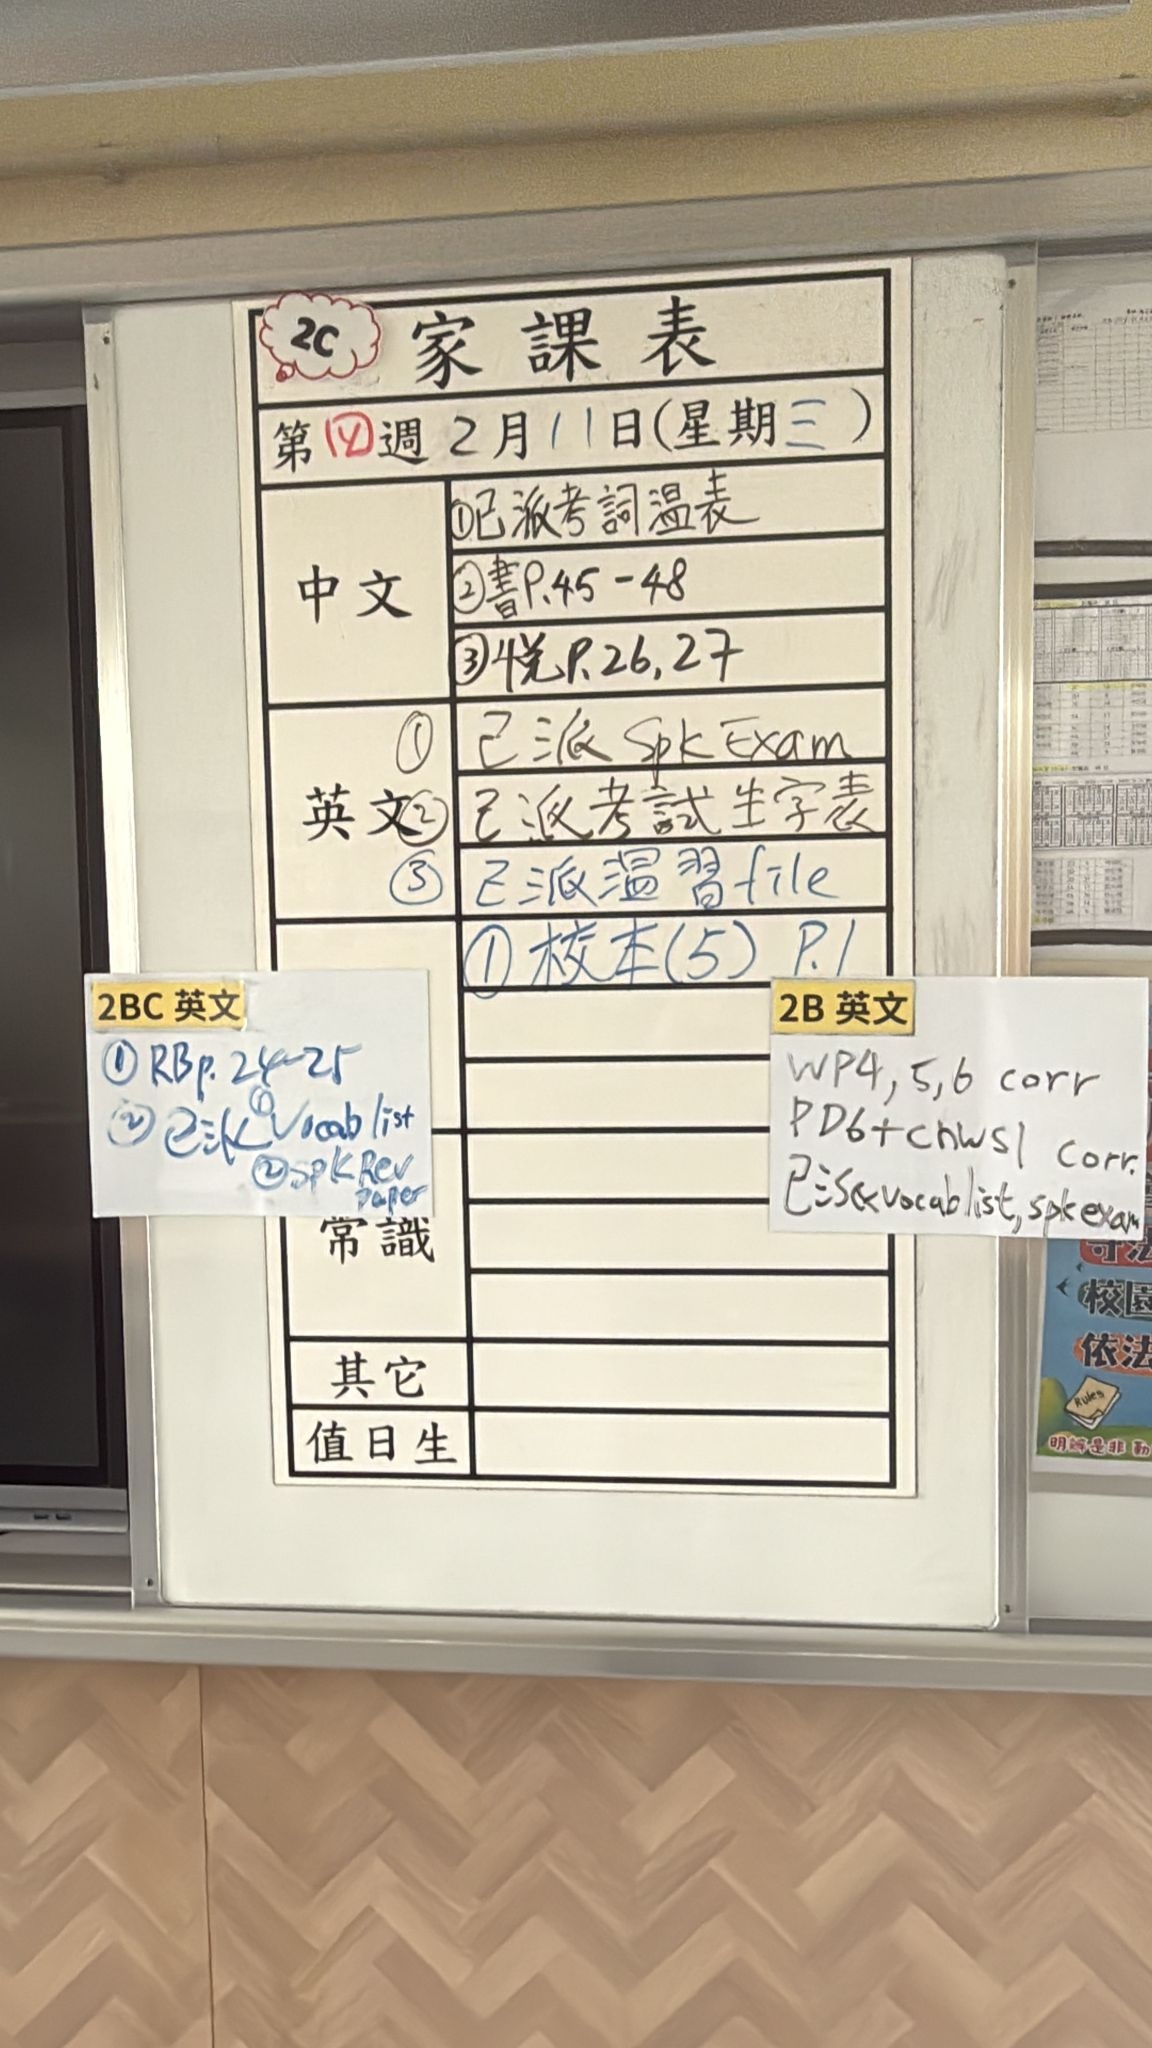 2C
家課表
第四週 2月11日(星期三)
中文
①已派考詞溫表
②書P.45-48
③悅P.26,27
英文
① 已派 Spk Exam
② 已派考試生字表
③ 已派溫習file
① 校本(5) P.1
2BC 英文
① RBp. 24-25
② 已派 ① Vocab list
② Spk Rev
paper
2B 英文
WP4, 5, 6 corr
PD6+cnws1 corr.
已派 vocab list, spk exam
常識
其它
值日生
校園
依法
Rules
明辨是非